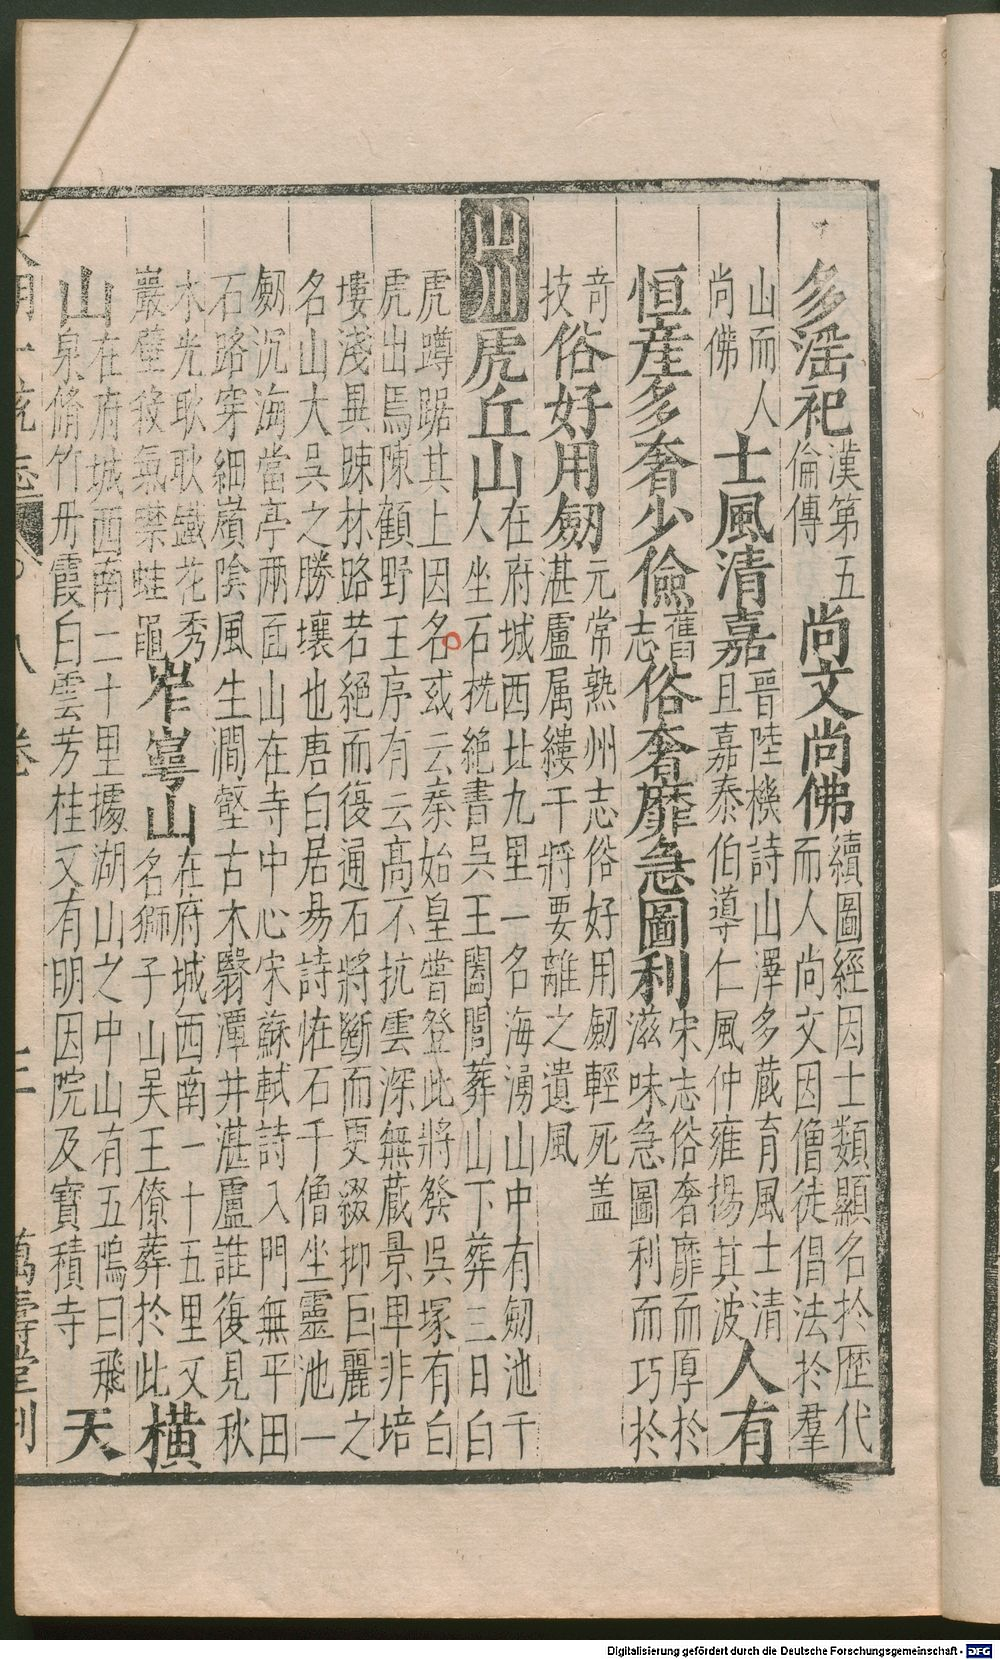 多滛祀漢第五倫傳尚文尚佛續圖經因士類顯名於歴代而人尚文因僧徒倡法於羣
山而人尚佛士風清嘉晉陸機詩山澤多藏育風士清且嘉泰伯導仁風仲雍揚其波人有
恒産多奢少儉舊志俗奢靡急圖利宋志俗奢靡而厚於滋味急圖利而巧於
竒技俗好用劒元常熟州志俗好用劒輕死盖湛盧属縷干將要離之遺風
山川虎丘山在府城西北九里一名海湧山中有劒池千人坐石桄絶書吳王闔閭葬山下葬三日白
虎蹲踞其上因名或云秦始皇嘗登此將發吳塚有白
虎出焉陳顧野王序有云高不抗雲深無藏景卑非培
塿淺異踈林路若絕而復通石將斷而更綴抑巨麗之
名山大吳之勝壤也唐白居昜詩恠石千僧坐靈池一
劒沉海當亭兩面山在寺中心宋蘇軾詩入門無平田
石路穿細嶺陰風生澗壑古木翳潭井湛盧誰復見秋
水光耿耿鐵花秀巖壁殺氣噤蛙黽岝㟧山在府城西南一十五里又名獅子山吳王僚葬於此橫
山在府城西南二十里據湖山之中山有五塢曰飛泉脩竹丹霞白雲芳桂又有明因院及寶積寺天
大明一統志 八卷 萬壽堂刊
Digitalisierung gefördert durch die Deutsche Forschungsgemeinschaft - DFG